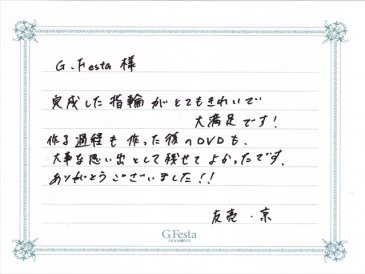 G.Festa 様
完成した指輪がとてもきれいで
大満足です!
作る過程も作った後のDVDも、
大事な思い出として残せてよかったです、
ありがとうございました!!
友亮・京
G.Festa
DIAMOND